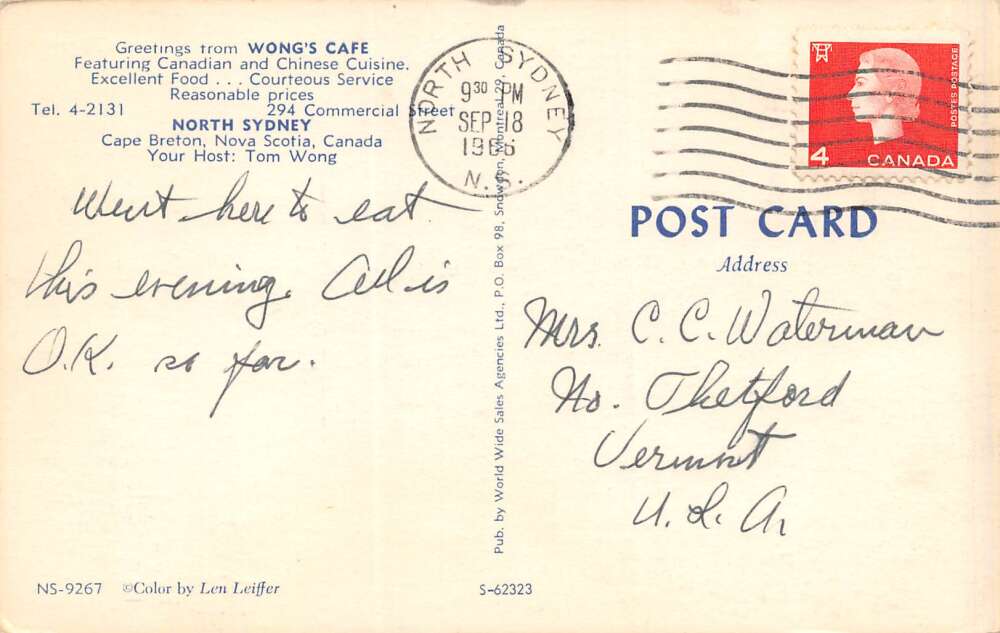 Greetings from WONG'S CAFE
Featuring Canadian and Chinese Cuisine.
Excellent Food . . . Courteous Service
Reasonable prices
Tel. 4-2131 294 Commercial Street
NORTH SYDNEY
Cape Breton, Nova Scotia, Canada
Your Host: Tom Wong
Went here to eat
this evening. All is
O.K. so far.
NS-9267 ©Color by Len Leiffer
Pub. by World Wide Sales Agencies Ltd., P.O. Box 98, Snowdon, Montreal 29, Canada
S-62323
NORTH SYDNEY
9 30 PM
SEP 18
1966
N.S.
POSTES POSTAGE
4 CANADA
POST CARD
Address
Mrs. C. C. Waterman
No. Thetford
Vermont
U.S.A.